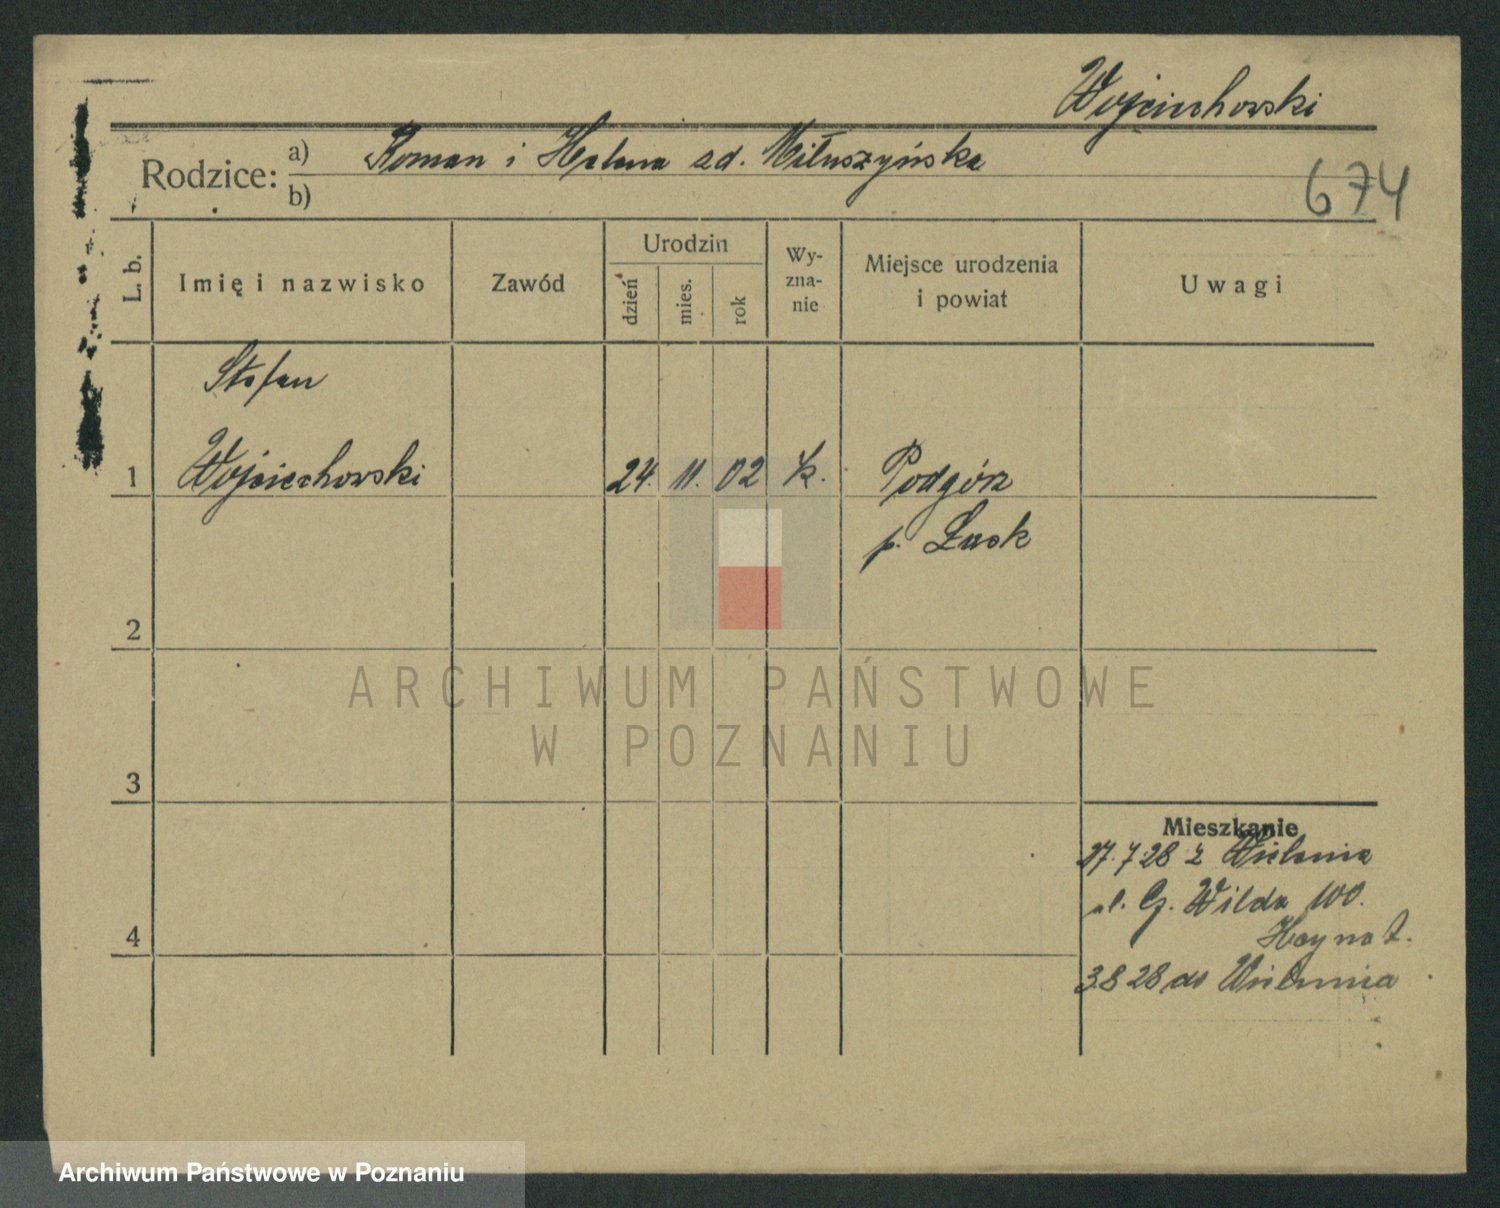 Wojciechowski
Rodzice: a) Roman i Helena zd. Miłuszyńska
b)
674
L. b.
Imię i nazwisko
Zawód
Urodzin
dzień
mies.
rok
Wy-
zna-
nie
Miejsce urodzenia
i powiat
Uwagi
Stefan
1 Wojciechowski 24. 11. 02 k. Podgórz
p. Łask
2
3
4
Mieszkanie
27.7.28 z Wielunia
ul. G. Wilda 100.
3.8 28 do Wielunia
ARCHIWUM PAŃSTWOWE
W POZNANIU
Archiwum Państwowe w Poznaniu